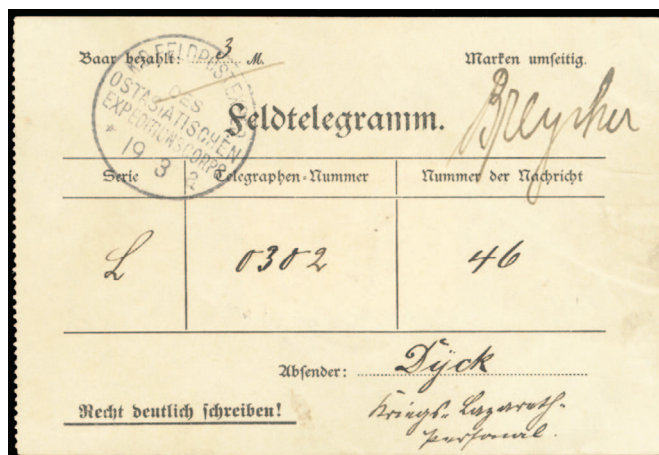 Baar bezahlt: 3 M.
Marken umseitig.
FELDPOSTEXPED
DES
OSTASIATISCHEN
EXPEDITIONSCORPS
* 19 3 2
Feldtelegramm.
Serie
Telegraphen-Nummer
Nummer der Nachricht
L
0302
46
Absender: Dÿck
Kriegs-Lazareth-
personal.
Recht deutlich schreiben!